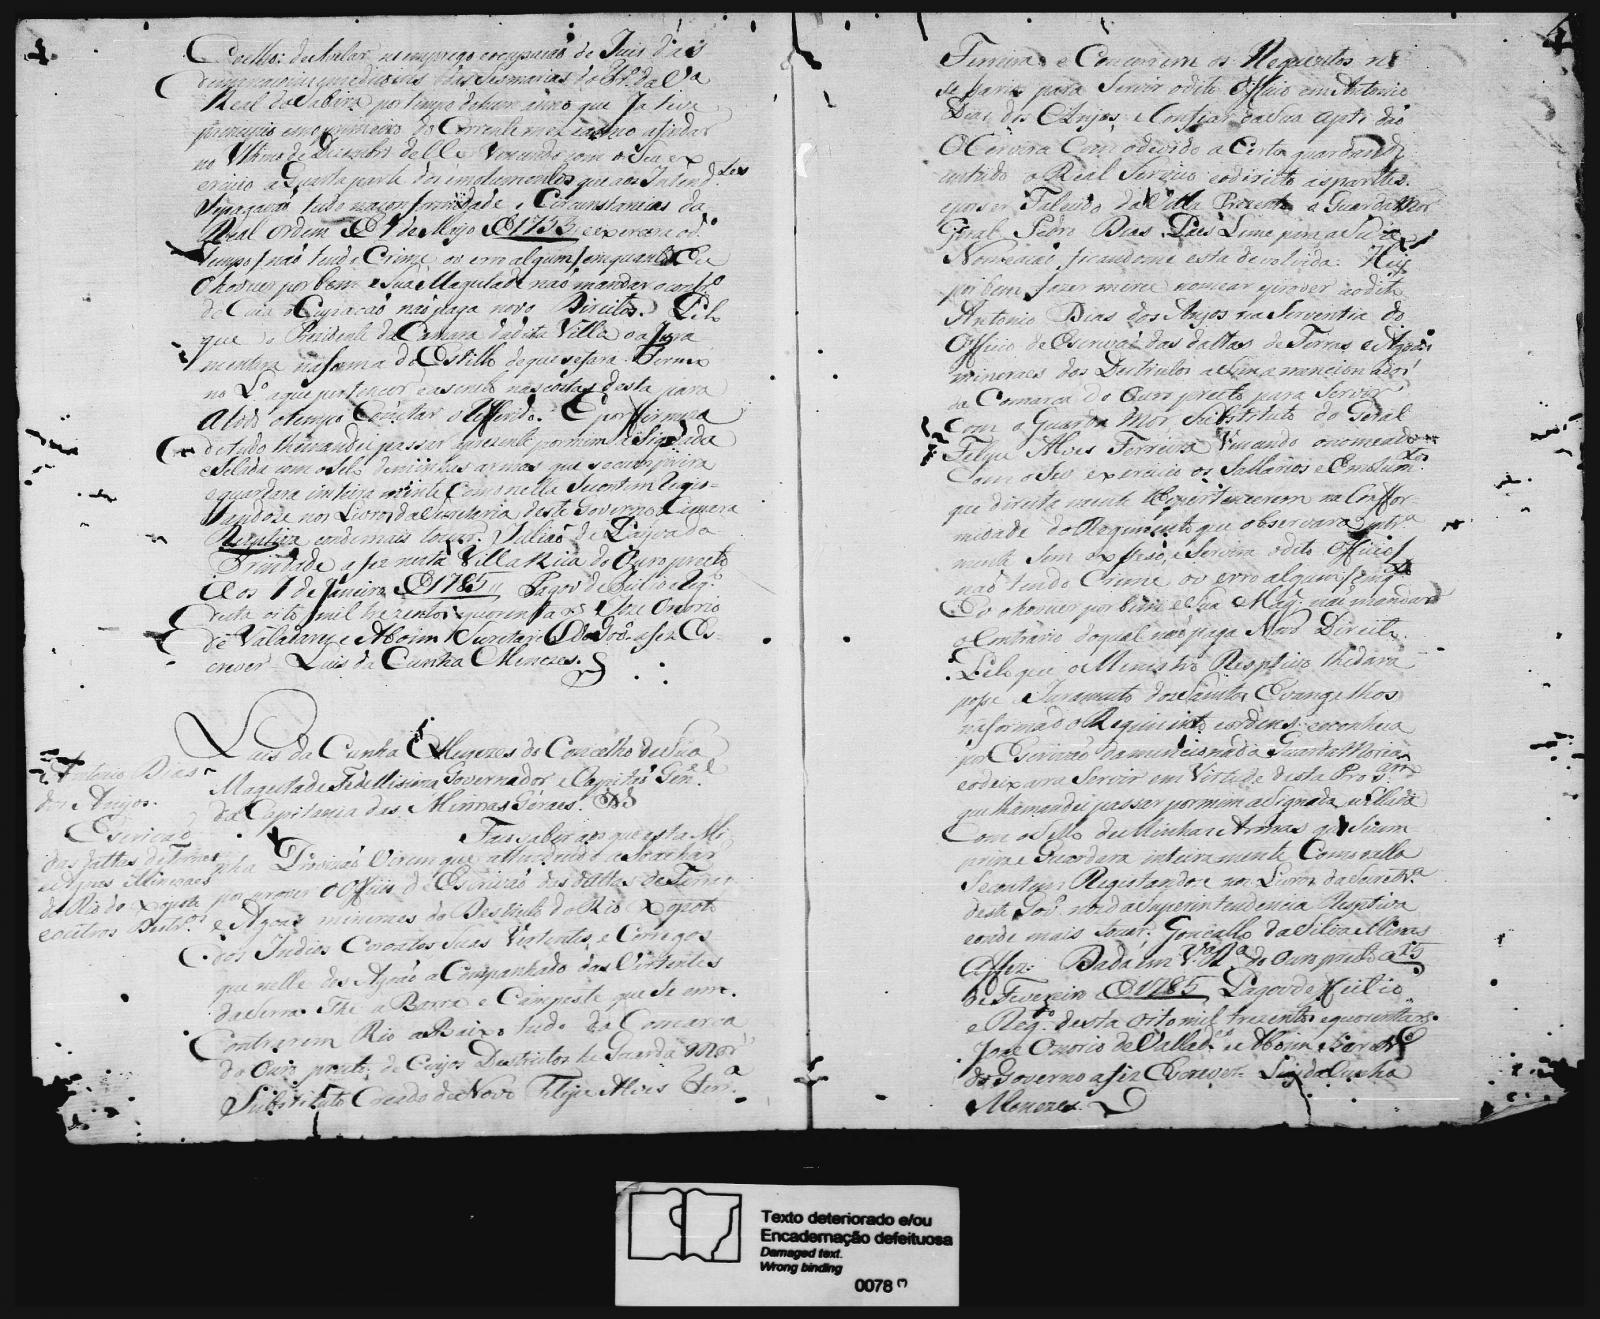 Coelho de Avelar no emprego e occupação de Juis das
demarcaçoins e medicoins das Sesmarias do Rº. da Vª
Real do Sabará por tempo de hum anno que ja teve
principio em o primeiro do Corrente mez e anno a findar
no Ultimo de Dezembro delle Vencendo com o Seu ex
ercicio a Quarta parte dos emolumentos que aos Intend.tes
Se pagavão tudo na conformidade, e Circunstancias da
Real ordem de 7 de Mayo de 1753 e exercerá o d.º
tempo / não tendo Crime, ou erro algum / emquanto Eu
o houver por bem e Sua Magestade não mandar o contr.º
de Cuja occupação não paga novo Direitos. Pelo
que o Prezidente da Camara da dita Villa o a Jura
mentará na forma do Estillo de que se fará Termo
no Lº a que pertencer e asento nas costas desta para
a todo o tempo Constar o Refferido. E por firmeza
de tudo lhe mandei passar a prezente por mim aSignada
e Selada com o Selo de minhas armas que se cumprirá
e guardará inteiramente como nella Se contem Regis-
tandose nos Livros da Secretaria deste Governo Camera
Respetiva, e onde mais tocar. Julião de
Trindade a fez nesta Villa Rica do Ouro preto
Aos 7 de Janeiro de 1785 Pagou de Feitio e Reg.º
desta oito mil trezentos e quarenta rs Joze Onorio
de Valadares e Aboim Secretario do Gov.º a fez Es-
crever Luis da Cunha Menezes.
Luis da Cunha e Menezes do Concelho de Sua
Magestade Fidellissima Governador e Capitão Gen.al
da Capitania das Minnas Geraes. &
Antonio Dias
dos Anjos.
Escrivão
das dattas de Terras
e Agoas Mineraes
do Rio do Xopoto
e outros Destr.os
Faço saber aos que esta Mi
nha Provizão Virem que attendendo a Se achar
por prover o Officio de Escrivão das dattas de Terras
e Agoas mineraes do Destricto do Rio Xopoto
dos Indios Coroatos Suas Vertentes, e Corregos
que nelle dos Agoão aCompanhado das Vertentes
da Serra the a Barra e Campeste que Se emre.
Contrarem Rio aBaixo tudo da Comarca
do Ouro preto, de Cujos Destrictos he Guarda Mor
Substituto Creado de Novo Felipe Alves Ferr.ª
Ferreira e Concorrem os Requezitos ne
sesarios para Servir o dito Officio em Antonio
Dias dos Anjos e Confiar da Sua aptidão
O Servirá Com o devido a Certo guardando
em tudo o Real Serviço e o direito as partes.
e por ser Falecido da Vida Prezente o Guarda Mor
Geral Pedro Dias Paes Leme para a Sua
Nomeacão ficandome esta devolvida: Hey
por bem fazer merce nomear e prover ao dito
Antonio Dias dos Anjos na Serventia do
Officio de Escrivão das dattas de Terras e Agoas
mineraes dos Destrictos aSima mencionados
da Comarca do Ouro preto para Servir
Com o Guarda Mor Substituto do Geral
Felipe Alves Ferreira Vencendo o nomeado
Com o Seu exercicio os Sallarios e Emolum.tos
que direita mente lhe pertencerem na Conffor-
midade do Regimento que observará intr.ª
mente Sem exceso, e Servirá o dito Officio /
não tendo Crime ou erro algum / emq.to
Eu o houver por bem e Sua Mag.e não mandar
o Contrario do qual não paga Novo Direito
Pelo que o Ministro Respetivo lhe dará
posse e Juramento dos Santos Evangelhos
na forma do Regimento e ordens: e conheça
por Escrivão da mencionada Guarda Moria
e o deixará Servir em Virtude desta Pro v.am
que lhe mandei passar por mim aSignada e Sellada
Com o Sello de Minhas Armas que Secum-
prirá e Guardará inteiramente Como nella
Se contem Registandose nos Livros da Secretr.ª
deste Gov.º no da Superintendencia Respetiva
e onde mais tocar. Goncallo da Silva Menas
A fez. Dada em V.ª R.ª do Ouro preto a 15
de Fevereiro de 1785 Pagou de Feitio
e Reg.º desta Oito mil trezentos e quorenta rs.
Joze Onorio de Vallad.es e Aboim Secretr.º
do Governo a fez Escrever. Luis da Cunha
Menezes.
Texto deteriorado e/ou
Encadernação defeituosa
Damaged text.
Wrong binding
0078